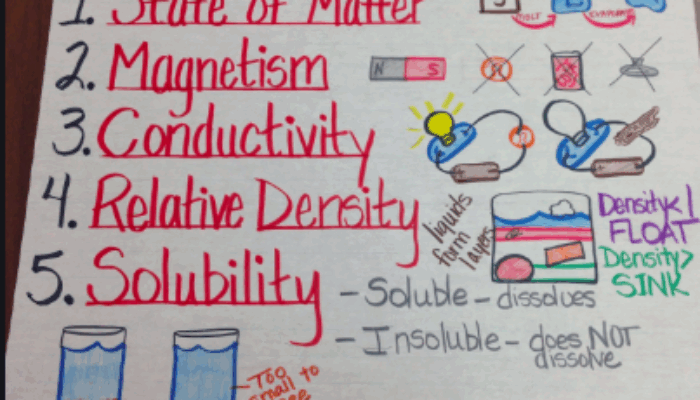 1. State of Matter
melt
evaporate
2. Magnetism
N S
3. Conductivity
4. Relative Density
liquids
form
layers
Density<1
FLOAT
Density>
SINK
5. Solubility
- Soluble - dissolves
- Insoluble - does NOT
dissolve
- Too
small to